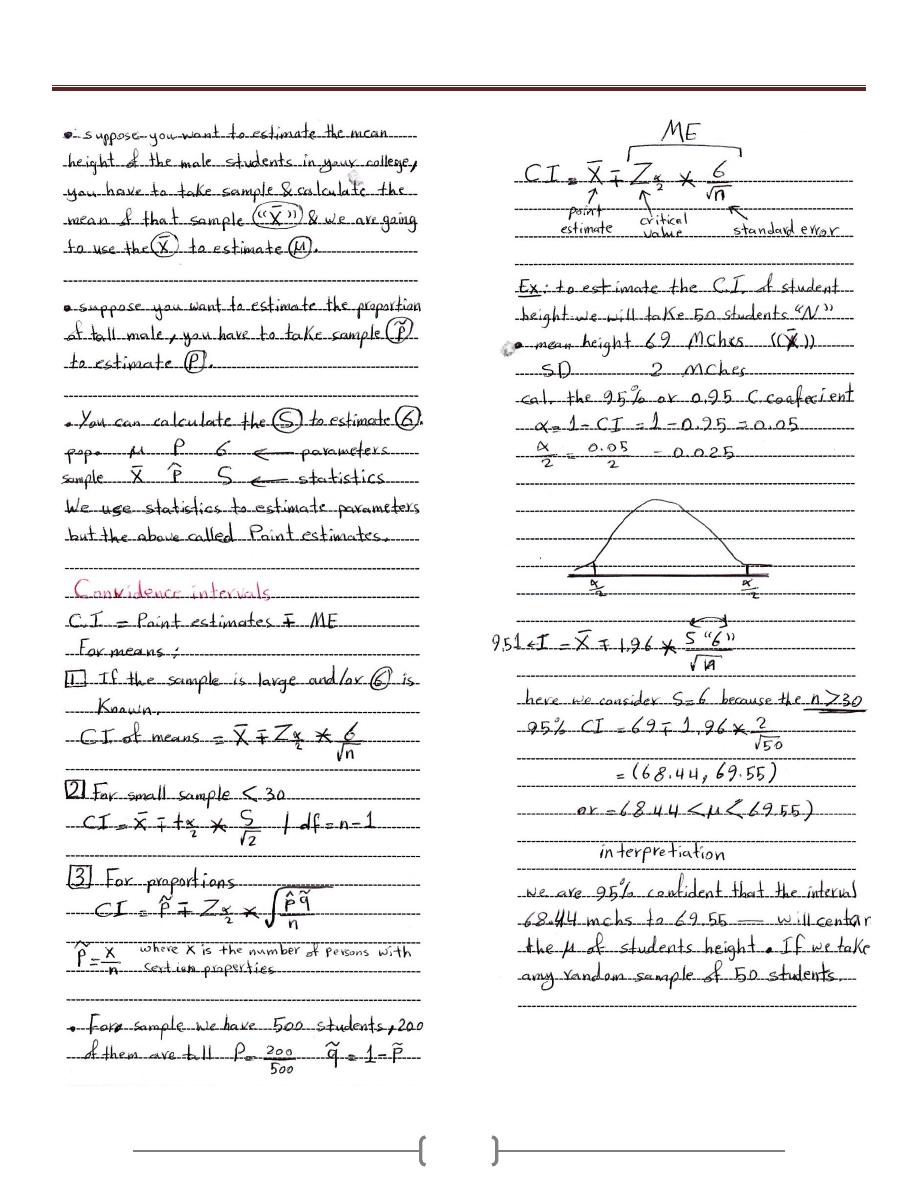 • suppose you want to estimate the mean
height of the male students in your college,
you have to take sample & calculate the
mean of that sample "X̄" & we are going
to use the X̄ to estimate μ.
• suppose you want to estimate the proportion
of tall male, you have to take sample p̃
to estimate P.
• You can calculate the S to estimate 6.
pop. μ P 6 ← parameters
sample X̄ p̂ S ← statistics
We use statistics to estimate parameters
but the above called Point estimates.
Convidence intervals
C.I = Point estimates ∓ ME
For means:
1 If the sample is large and/or 6 is
Known.
CI of means = X̄ ∓ Zα/2 * 6/√n
2 For small sample < 30
CI = X̄ ∓ tα/2 * S/√2 / df = n-1
3 For proportions
CI = p̃ ∓ Zα/2 * √(p̂q̃/n)
p̃ = x/n where X is the number of persons with
certian properties
• For sample we have 500 students, 200
of them are tall P = 200/500 q̃ = 1 - p̃
ME
CI = X̄ ∓ Zα/2 * 6/√n
point estimate critical value standard error
Ex: to estimate the C.I. of student
height we will take 50 students "N"
• mean height 69 Mches "X̄"
SD 2 Mches
cal. the 95% or 0.95 C.coafecient
α = 1 - CI = 1 - 0.95 = 0.05
α/2 = 0.05/2 = 0.025
α/2 α/2
I = X̄ ∓ 1,96 * S "6"/√n
here we consider S=6 because the n≥30
95% CI = 69 ∓ 1,96 * 2/√50
= (68.44, 69.55)
or = 68.44 < μ < 69.55)
interpretiation
we are 95% confident that the interval
68.44 mchs to 69.55 — will centar
the μ of students height. If we take
any random sample of 50 students.